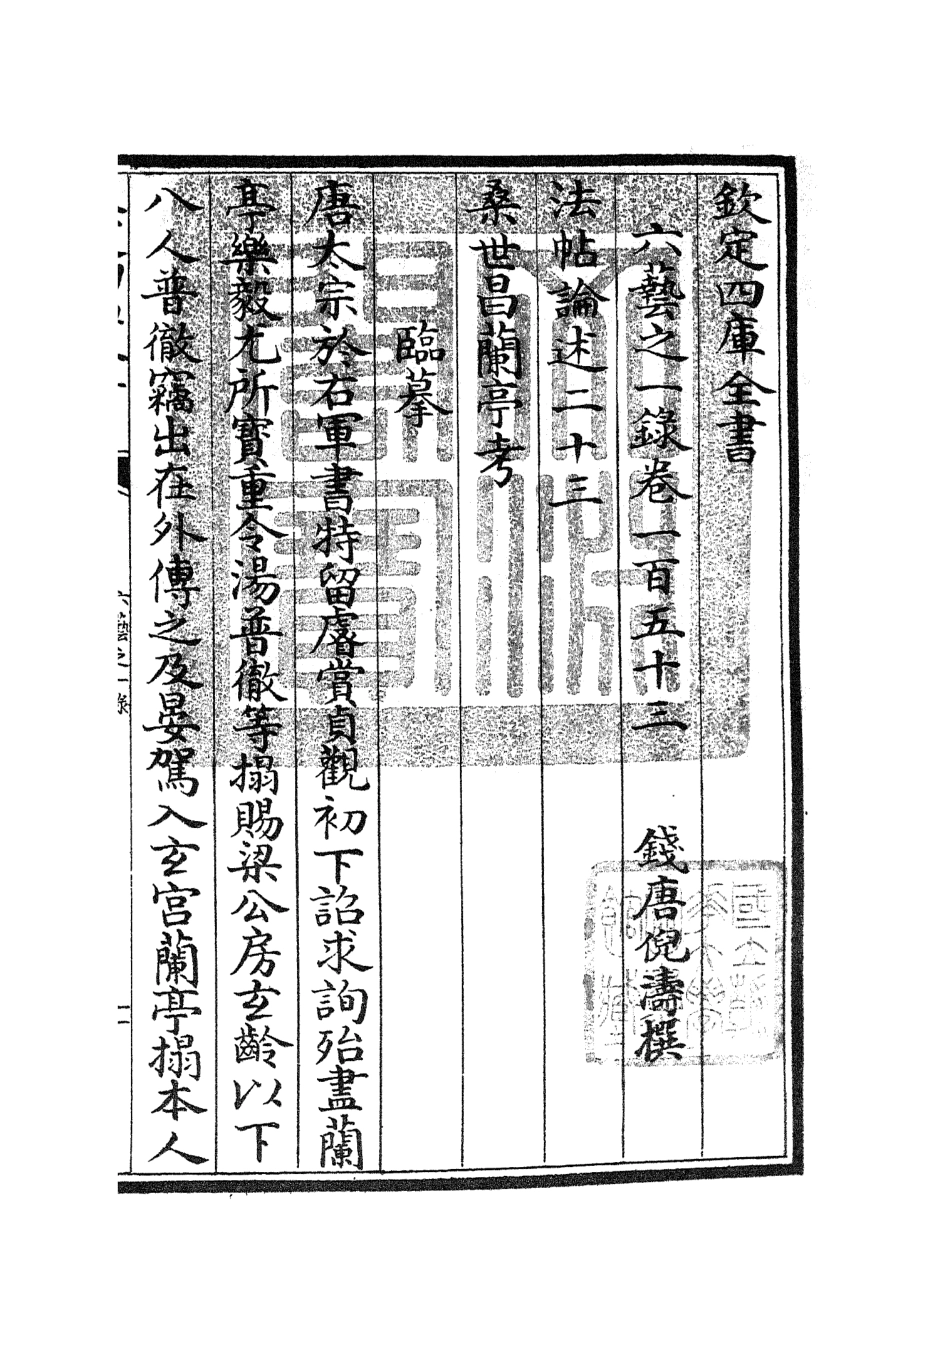 欽定四庫全書
六藝之一錄卷一百五十三 錢唐倪濤撰
法帖論述二十三
桑世昌蘭亭考
臨摹
唐太宗於右軍書特留睿賞貞觀初下詔求詢殆盡蘭
亭樂毅尤所寳重令湯普徹等搨賜梁公房玄齡以下
八人普徹竊出在外傳之及晏駕入玄宮蘭亭搨本人
六藝之一錄
一